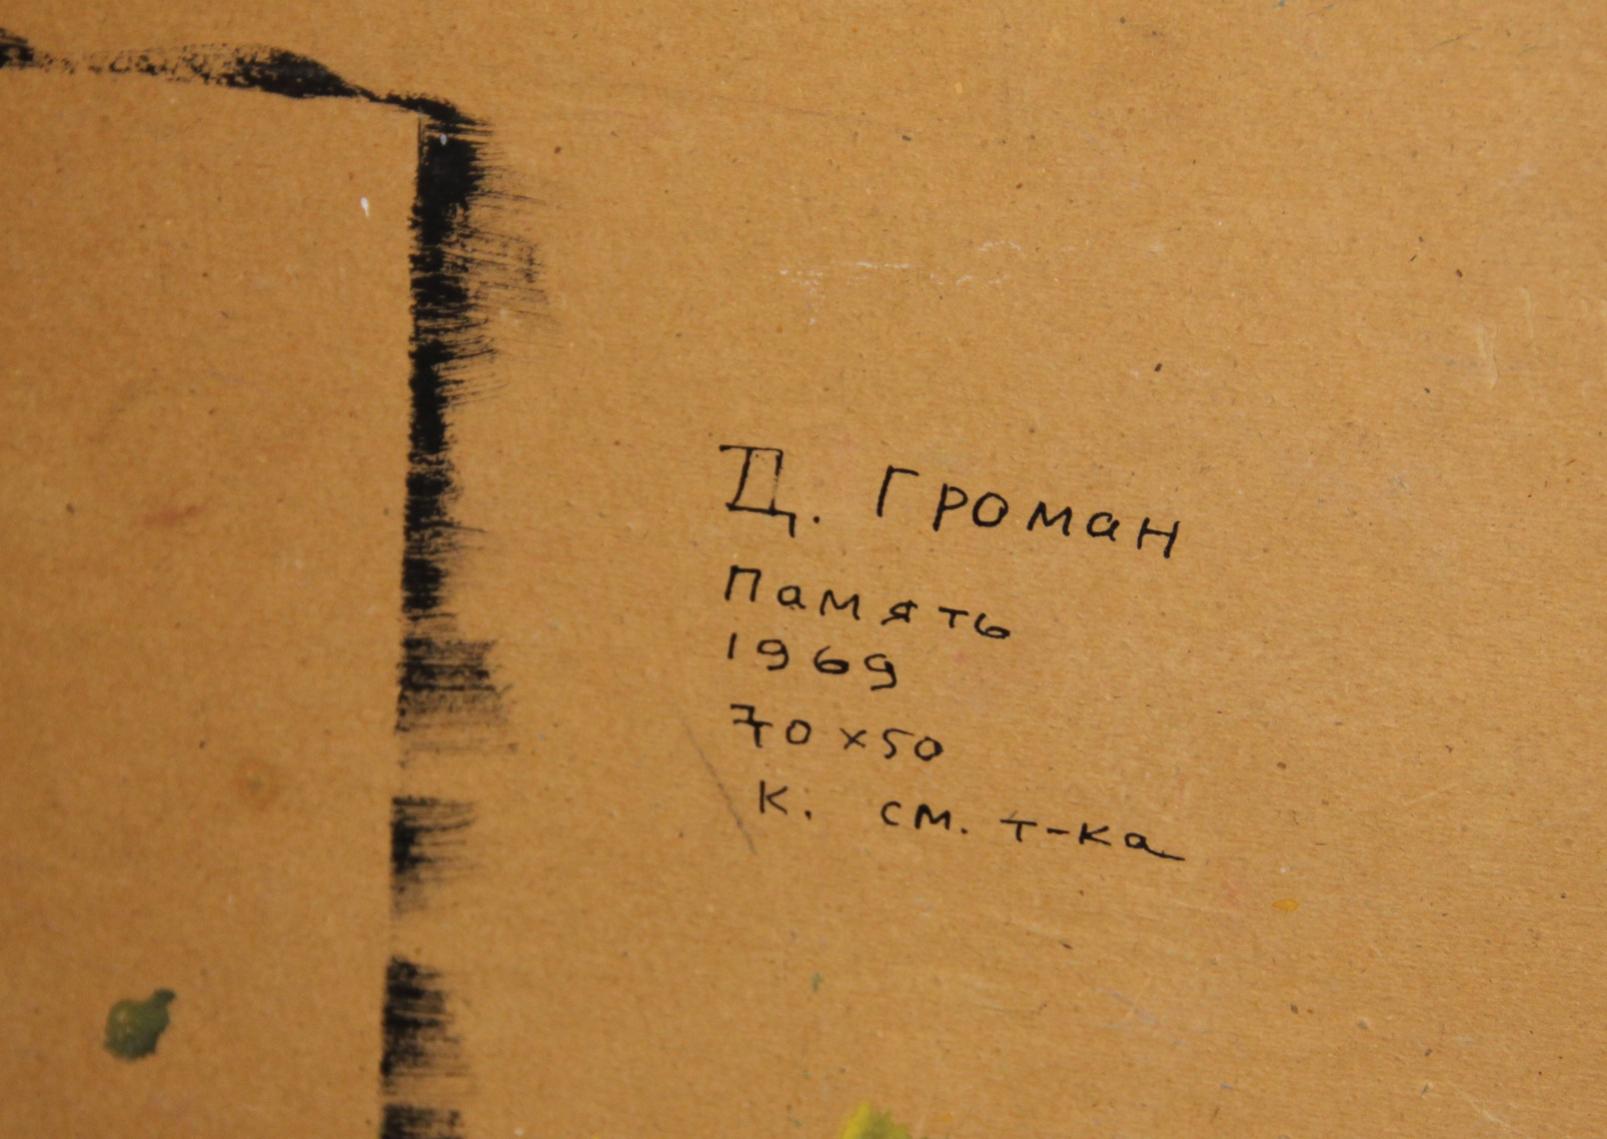 Д. Громан
Память
1969
70x50
К. см. т-ка